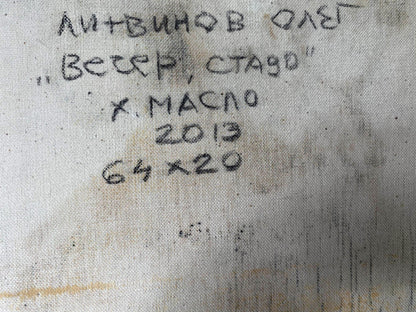 ЛИТВИНОВ ОЛЕГ
„Вечер, СТАДО"
Х. МАСЛО
2013
64х20